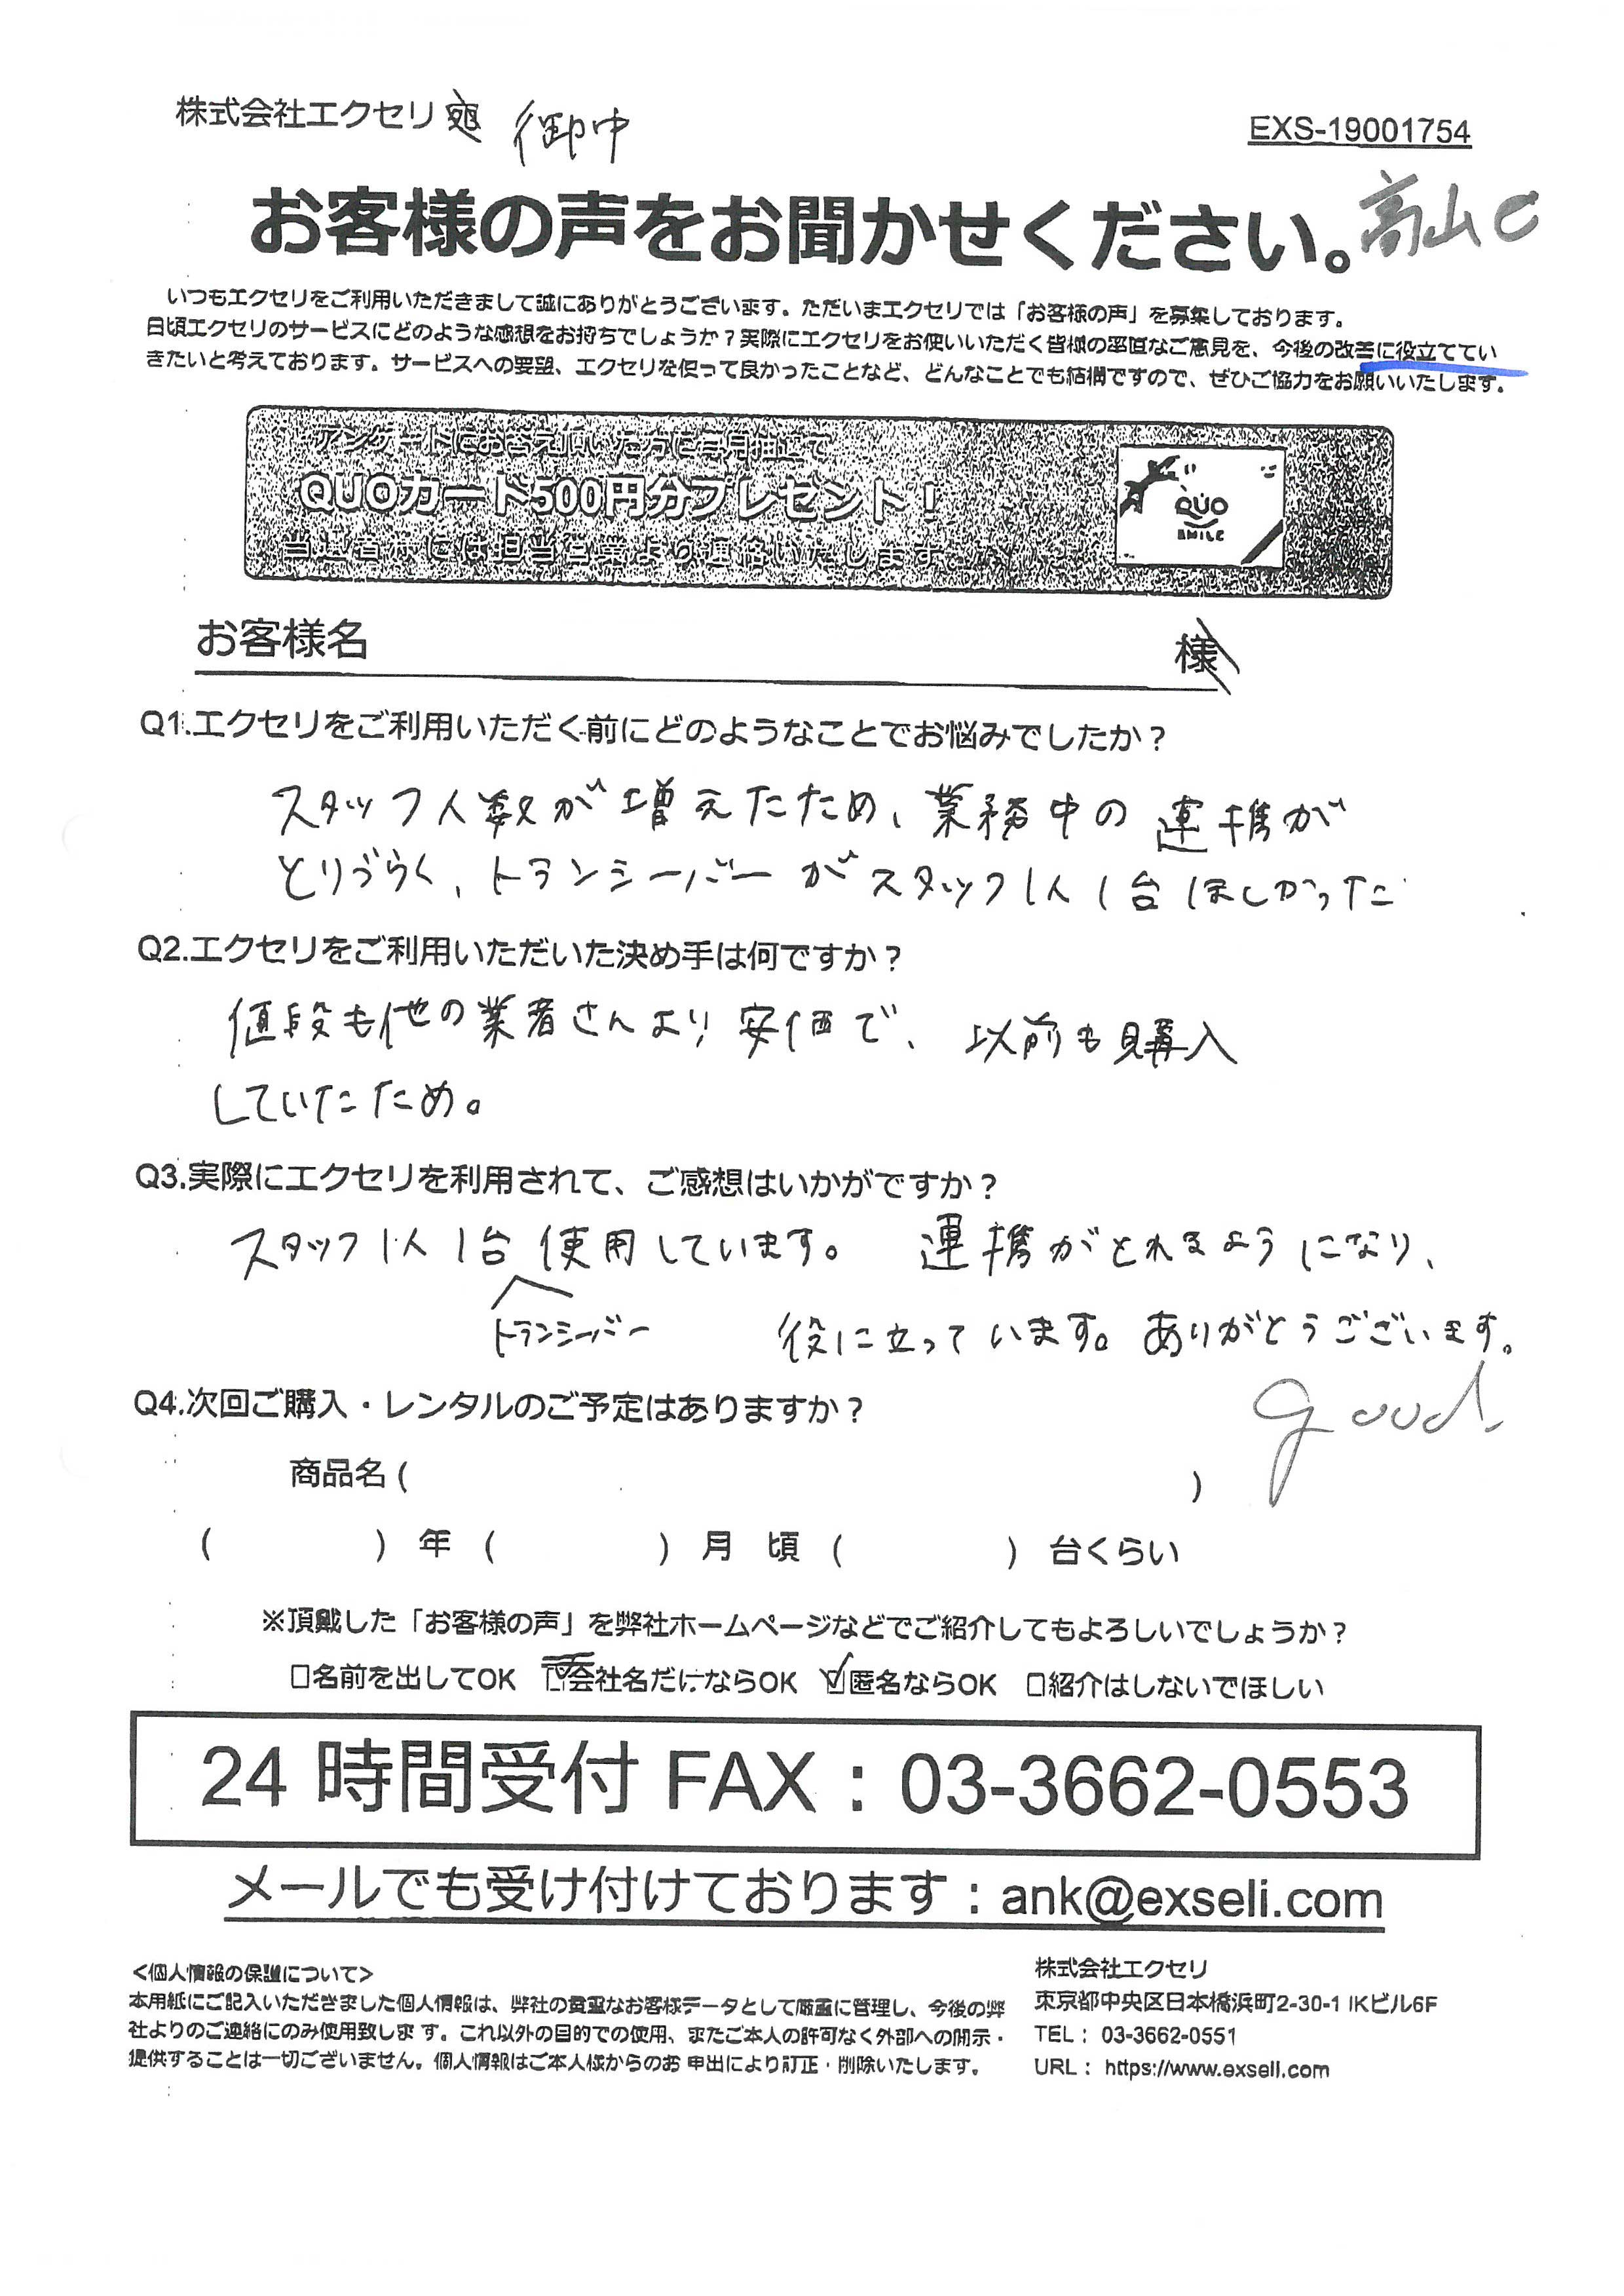 株式会社エクセリ 宛 御中
EXS-19001754
お客様の声をお聞かせください。
高山C
いつもエクセリをご利用いただきまして誠にありがとうございます。ただいまエクセリでは「お客様の声」を募集しております。
日頃エクセリのサービスにどのような感想をお持ちでしょうか？実際にエクセリをお使いいただく皆様の率直なご意見を、今後の改善に役立ててい
きたいと考えております。サービスへの要望、エクセリを使って良かったことなど、どんなことでも結構ですので、ぜひご協力をお願いいたします。
アンケートにお答え頂いた方に毎月抽選で
QUOカード500円分プレゼント！
には担当営業より連絡いたします。
QUO
SMILE
お客様名 様
Q1.エクセリをご利用いただく前にどのようなことでお悩みでしたか？
スタッフ人数が増えたため、業務中の連携が
とりづらく、トランシーバーがスタッフ1人1台ほしかった
Q2.エクセリをご利用いただいた決め手は何ですか？
値段も他の業者さんより安価で、以前も購入
していたため。
Q3.実際にエクセリを利用されて、ご感想はいかがですか？
スタッフ1人1台使用しています。 連携がとれるようになり、
トランシーバー 役に立っています。ありがとうございます。
good
Q4.次回ご購入・レンタルのご予定はありますか？
商品名( )
( ) 年 ( ) 月 頃 ( ) 台くらい
※頂戴した「お客様の声」を弊社ホームページなどでご紹介してもよろしいでしょうか？
□名前を出してOK ☑会社名だけならOK ☑匿名ならOK □紹介はしないでほしい
24 時間受付 FAX：03-3662-0553
メールでも受け付けております：ank@exseli.com
<個人情報の保護について>
本用紙にご記入いただきました個人情報は、弊社の貴重なお客様データとして厳重に管理し、今後の弊
社よりのご連絡にのみ使用致します。これ以外の目的での使用、またご本人の許可なく外部への開示・
提供することは一切ございません。個人情報はご本人様からのお申出により訂正・削除いたします。
株式会社エクセリ
東京都中央区日本橋浜町2-30-1 IKビル6F
TEL： 03-3662-0551
URL： https://www.exseli.com